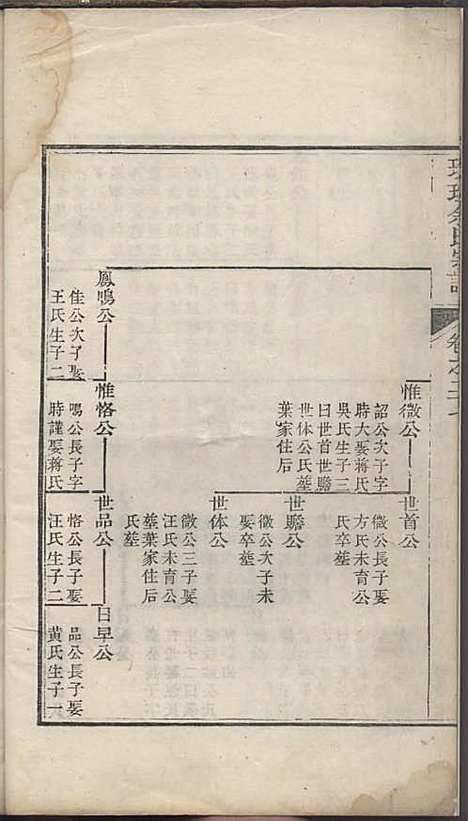 惟微公
詔公次子字
時大娶蔣氏
吳氏生子三
曰世首世贍
世体公氏塟
葉家住后
世首公
微公長子娶
方氏未育公
氏卒塟
世贍公
微公次子未
娶卒塟
世体公
微公三子娶
汪氏未育公
塟葉家住后
氏塟
鳳鳴公
佳公次子娶
王氏生子二
惟恪公
鳴公長子字
時謹娶蔣氏
世品公
恪公長子娶
汪氏生子二
日早公
品公長子娶
黃氏生子一
氏宗譜
卷之二